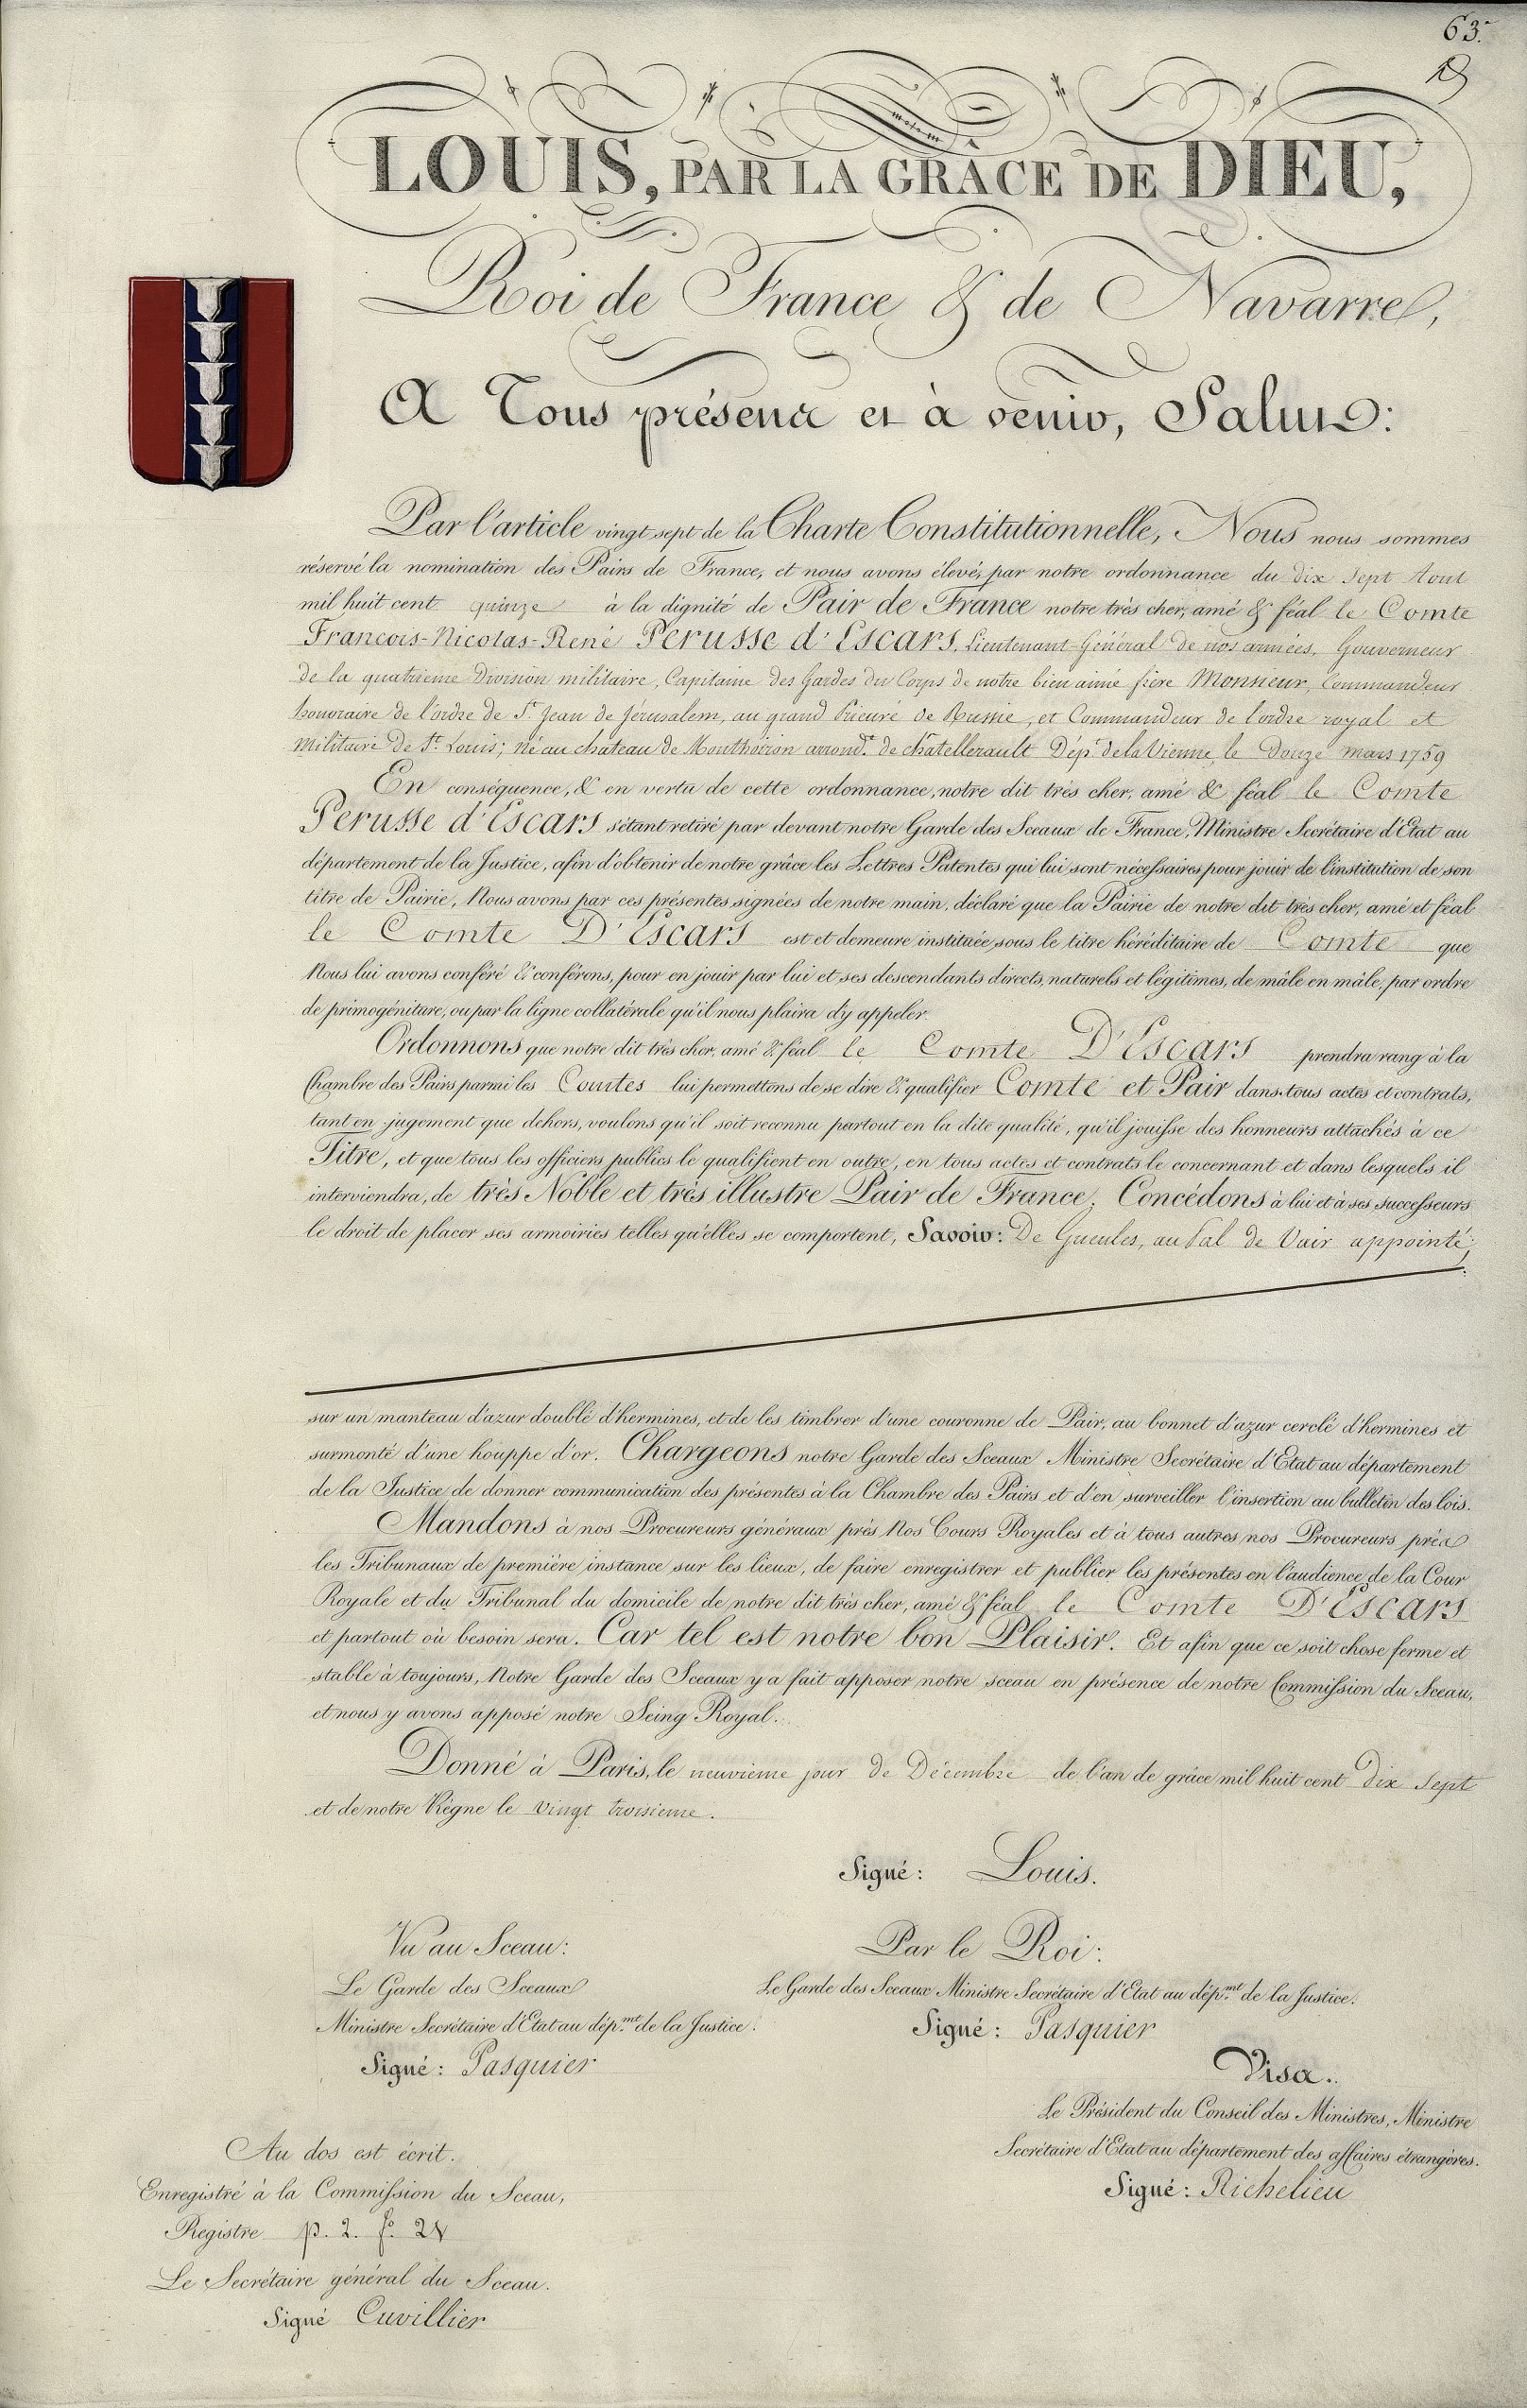 63.
LOUIS, PAR LA GRÂCE DE DIEU,
Roi de France & de Navarre,
A Tous présens et à venir, Salut:
Par l'article vingt sept de la Charte Constitutionnelle, Nous nous sommes
réservé la nomination des Pairs de France, et nous avons élevé, par notre ordonnance du dix Sept Aout
mil huit cent quinze à la dignité de Pair de France notre très cher, amé & féal le Comte
Francois-Nicolas-René Perusse d'Escars, Lieutenant-Général de nos armées, Gouverneur
de la quatrieme Division militaire, Capitaine des Gardes du Corps de notre bien aimé frère Monsieur, Commandeur
honoraire de l'ordre de St. Jean de Jérusalem, au grand Prieuré de Russie, et Commandeur de l'ordre royal et
militaire de St. Louis; né au chateau de Monthoiron arrondt. de chatellerault Dépt. de la Vienne, le Douze mars 1759
En conséquence, & en vertu de cette ordonnance, notre dit très cher, amé & féal le Comte
Perusse d'Escars s'étant retiré par devant notre Garde des Sceaux de France, Ministre Secrétaire d'Etat au
département de la Justice, afin d'obtenir de notre grâce les Lettres Patentes qui lui sont nécessaires pour jouir de l'institution de son
titre de Pairie, Nous avons par ces présentes signées de notre main, déclaré que la Pairie de notre dit très cher, amé et féal
le Comte D'Escars est et demeure instituée sous le titre héréditaire de Comte que
Nous lui avons conféré & conférons, pour en jouir par lui et ses descendants directs, naturels et légitimes, de mâle en mâle, par ordre
de primogéniture, ou par la ligne collatérale qu'il nous plaira d'y appeler.
Ordonnons que notre dit très cher, amé & féal le Comte D'Escars prendra rang à la
Chambre des Pairs parmi les Comtes lui permettons de se dire & qualifier Comte et Pair dans tous actes et contrats,
tant en jugement que dehors, voulons qu'il soit reconnu partout en la dite qualité, qu'il jouisse des honneurs attachés à ce
Titre, et que tous les officiers publics le qualifient en outre, en tous actes et contrats le concernant et dans lesquels il
interviendra, de très Noble et très illustre Pair de France. Concédons à lui et à ses successeurs
le droit de placer ses armoiries telles qu'elles se comportent, Savoir: De Gueules, au Pal de Vair appointé;
sur un manteau d'azur doublé d'hermines, et de les timbrer d'une couronne de Pair, au bonnet d'azur cerclé d'hermines et
surmonté d'une houppe d'or. Chargeons notre Garde des Sceaux Ministre Secrétaire d'Etat au département
de la Justice de donner communication des présentes à la Chambre des Pairs et d'en surveiller l'insertion au bulletin des lois.
Mandons à nos Procureurs généraux près Nos Cours Royales et à tous autres nos Procureurs près
les Tribunaux de première instance sur les lieux, de faire enregistrer et publier les présentes en l'audience de la Cour
Royale et du Tribunal du domicile de notre dit très cher, amé & féal le Comte D'Escars
et partout où besoin sera. Car tel est notre bon Plaisir. Et afin que ce soit chose ferme et
stable à toujours, Notre Garde des Sceaux y a fait apposer notre sceau en présence de notre Commission du Sceau,
et nous y avons apposé notre Seing Royal.
Donné à Paris, le neuvieme jour de Décembre de l'an de grâce mil huit cent dix Sept
et de notre Règne le vingt troisieme.
Signé: Louis.
Vu au Sceau:
Le Garde des Sceaux
Ministre Secrétaire d'Etat au dép.mt de la Justice.
Signé: Pasquier
Par le Roi:
Le Garde des Sceaux Ministre Secrétaire d'Etat au dép.mt de la Justice.
Signé: Pasquier
Visa.
Le Président du Conseil des Ministres, Ministre
Secrétaire d'Etat au département des affaires étrangères.
Signé: Richelieu
Au dos est écrit.
Enregistré à la Commission du Sceau,
Registre p. 2. fo. 24
Le Secrétaire général du Sceau.
Signé Cuvillier